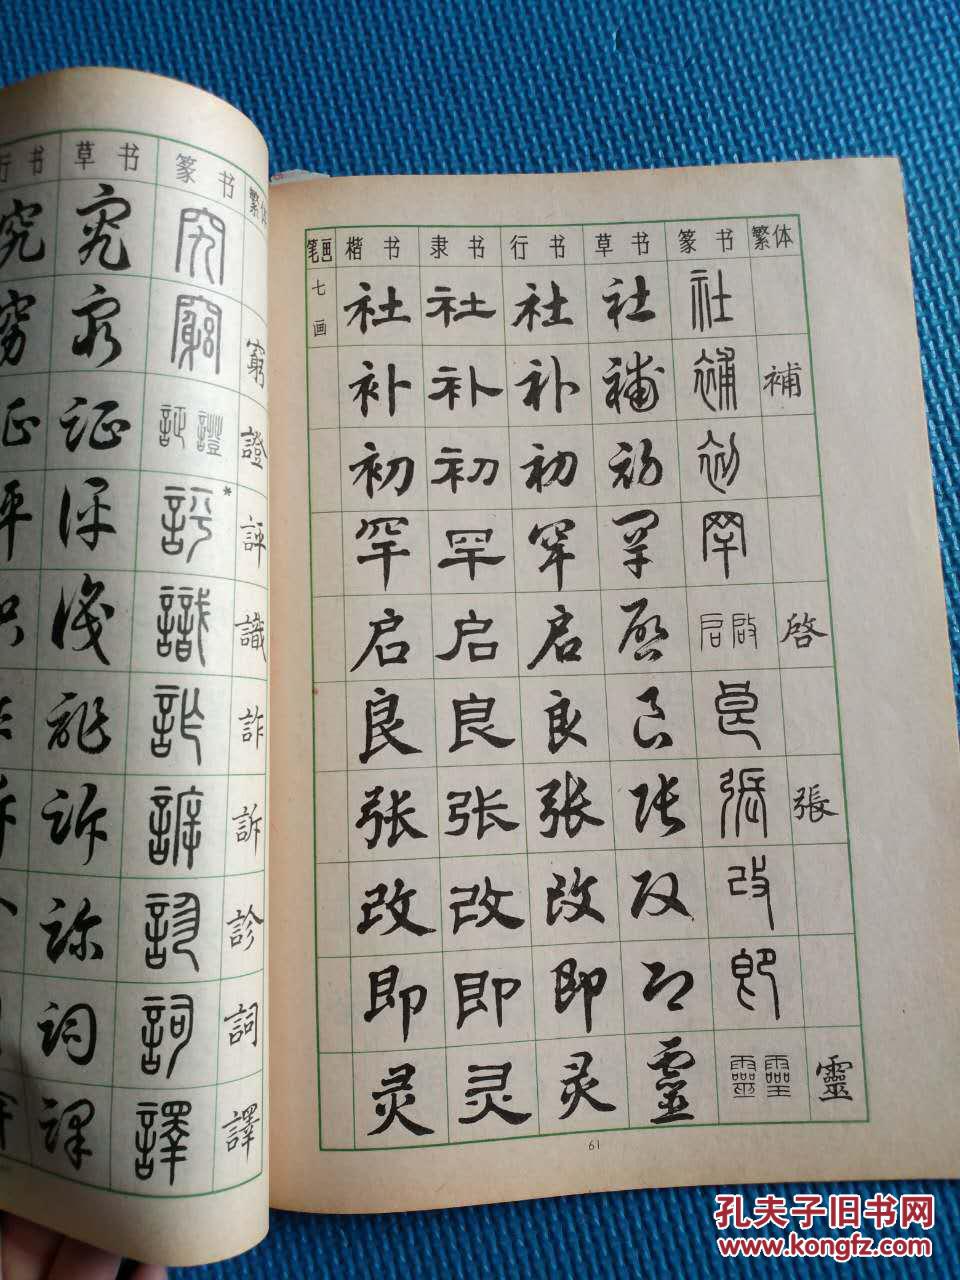 行书 草书 篆书 繁体
究 究 究
穷 穷 窮 窮
证 证 証 證 證
评 评 評 * 評
识 识 識 識
诈 詐 詐
诉 诉 訴 訴
诊 診 診
词 詞 詞
译 譯 譯
笔画 楷书 隶书 行书 草书 篆书 繁体
七画 社 社 社 社 社
补 补 补 補 補 補
初 初 初 初 初
罕 罕 罕 罕 罕
启 启 启 啓 启 啟 啓
良 良 良 良 良
张 张 张 张 張 張
改 改 改 改 改
即 即 即 即 即
灵 灵 灵 靈 靈 靈 靈
61
孔夫子旧书网
www.kongfz.com